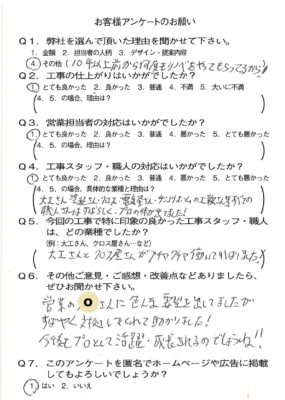 お客様アンケートのお願い
Q1. 弊社を選んで頂いた理由を聞かせて下さい。
1. 金額 2. 担当者の人柄 3. デザイン・提案内容
4. その他（10年以上前から何度もリノベをやてもらってるから）
Q2. 工事の仕上がりはいかがでしたか？
1. とても良かった 2. 良かった 3. 普通 4. 不満 5. 大いに不満
4、5、の場合、理由は？
Q3. 営業担当者の対応はいかがでしたか？
1. とても良かった 2. 良かった 3. 普通 4. 悪かった 5. とても悪かった
4、5、の場合、理由は？
Q4. 工事スタッフ・職人の対応はいかがでしたか？
1. とても良かった 2. 良かった 3. 普通 4. 悪かった 5. とても悪かった
4、5、の場合、具体的な業種と理由は？
大工さん クロス
職人さんはすばらしく、プロの仕事が出てました！
Q5. 今回の工事で特に印象の良かった工事スタッフ・職人
は、どの業種でしたか？
（例：大工さん、クロス屋さん…など）
大工さんとクロス屋さんが アチャアチャ働いて
Q6. その他ご意見・ご感想・改善点などありましたら、
ぜひお聞かせ下さい。
営業の O さんに色んな要望を出してましたが
すばやく対処してくれて助かりました！
今後もプロとして活躍・成長されるのでしょうね!!
Q7. このアンケートを匿名でホームページや広告に掲載
してもよろしいでしょうか？
1. はい 2. いいえ